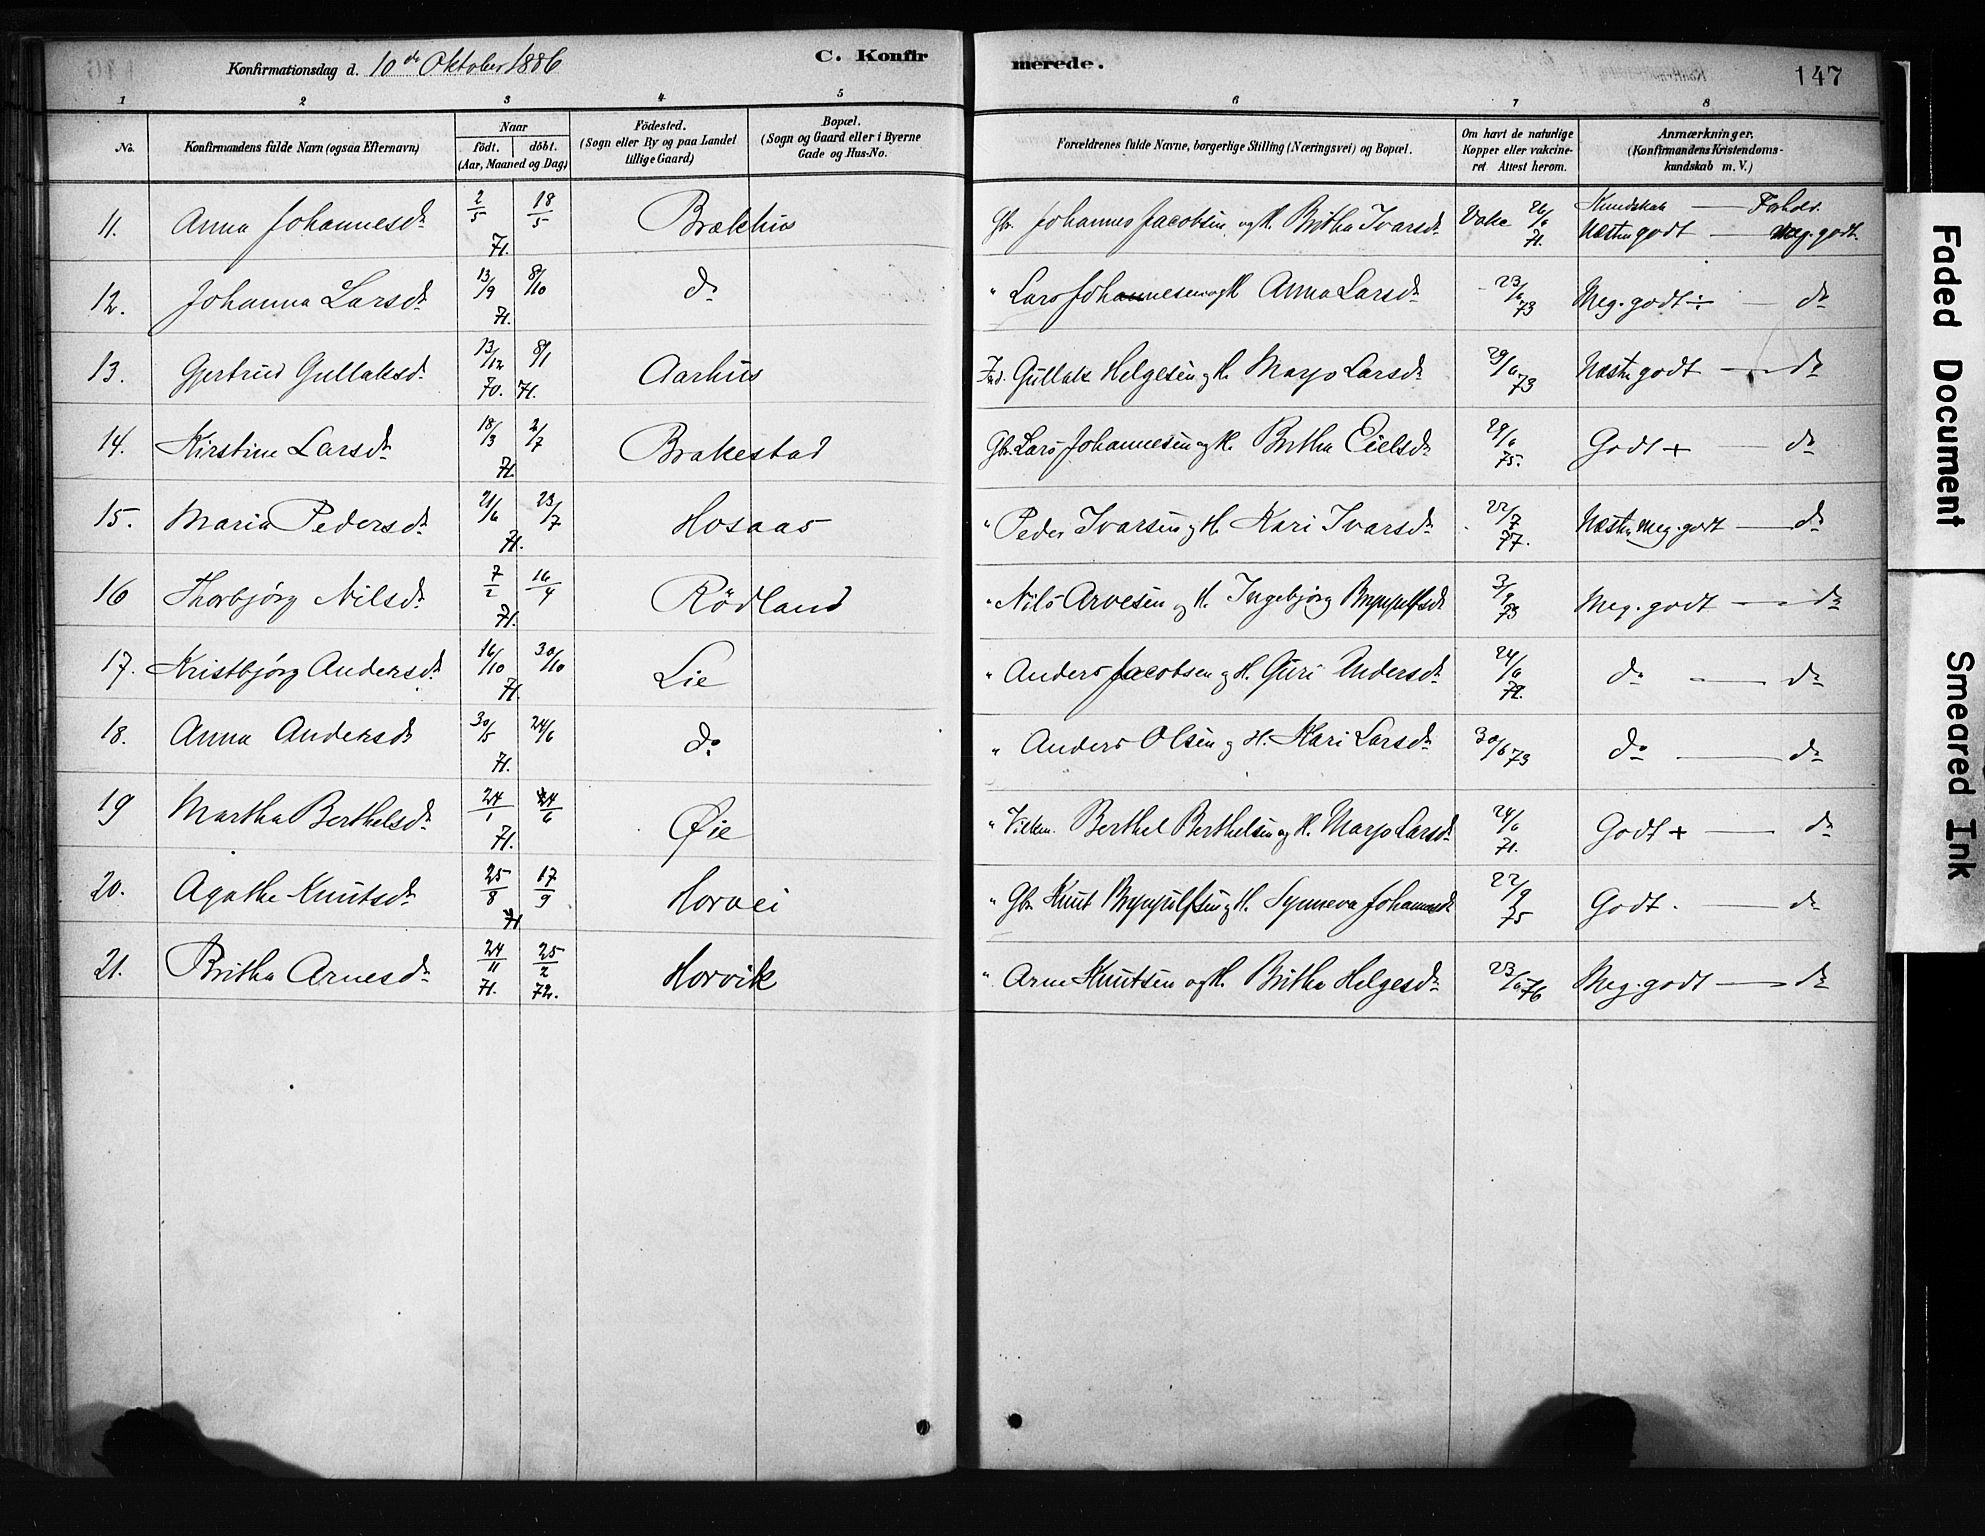 Konfirmationsdag d. 10de Oktober 1886 C. Konfir merede. 147
1 2 3 4 5 6 7 8
No. Konfirmandens fulde Navn (ogsaa Efternavn) Naar födt. döbt. (Aar, Maaned og Dag) Födested. (Sogn eller By og paa Landet tillige Gaard) Bopæl. (Sogn og Gaard eller i Byerne Gade og Hus-No. Forældrenes fulde Navne, borgerlige Stilling (Næringsvei) og Bopæl. Om havt de naturlige Kopper eller vakcineret Attest herom. Anmærkninger. (Konfirmandens Kristendomskundskab m. V.)
11. Anna Johannesdr 2/5 18/5 71. Brækhus Gbr. Johannes Jacobsen og H. Britha Ivarsdr Vakc 26/6 71. Kundskab — Forhol. Næsten godt — meg. godt.
12. Johanna Larsdr 13/9 8/10 71. do " Lars Johannesen og H Anna Larsdr 23/6 73 Meg. godt ÷ — do
13. Gjertrud Gullaksdr 13/12 70. 8/1 71. Aarhus Ind. Gullak Helgesen og H. Marjo Larsdr 29/6 73 Næsten godt — do
14. Kirstine Larsdr 18/3 2/7 71. Brakestad Gbr. Lars Johannesen og H. Britha Eielsdr 29/6 75. Godt + do
15. Maria Pedersdr 21/6 23/7 71. Hosaas " Peder Ivarsen og H. Kari Ivarsdr 22/7 77. Næsten meg. godt — do
16 Thorbjørg Nilsdr 7/2 16/4 71. Rödland " Nils Arvesen og H. Ingebjörg Brynjulfsdr 3/9 73 Meg. godt — do
17. Kristbjørg Andersdr 16/10 30/10 71. Lie " Anders Jacobsen og H. Guri Andersdr 24/6 72. do — do
18. Anna Andersdr 30/5 24/6 71. do " Anders Olsen og H. Kari Larsdr 30/6 73 do — do
19 Martha Berthelsdr 24/1 24/6 71. Øie " Berthel Berthelsen og H. Marjo Larsdr 24/6 71. Godt + — do
20. Agathe Knutsdr 25/8 17/9 71 Horvei " Gbr. Knut Brynjulfsen og H. Synneva Johannesdr 22/9 75 Godt. — do
21. Britha Arnesdr 24/11 71. 25/2 72. Horvik " Arne Knutsen og H. Britha Helgesdr 23/6 76 Meg. godt — do
Faded Document
Smeared Ink